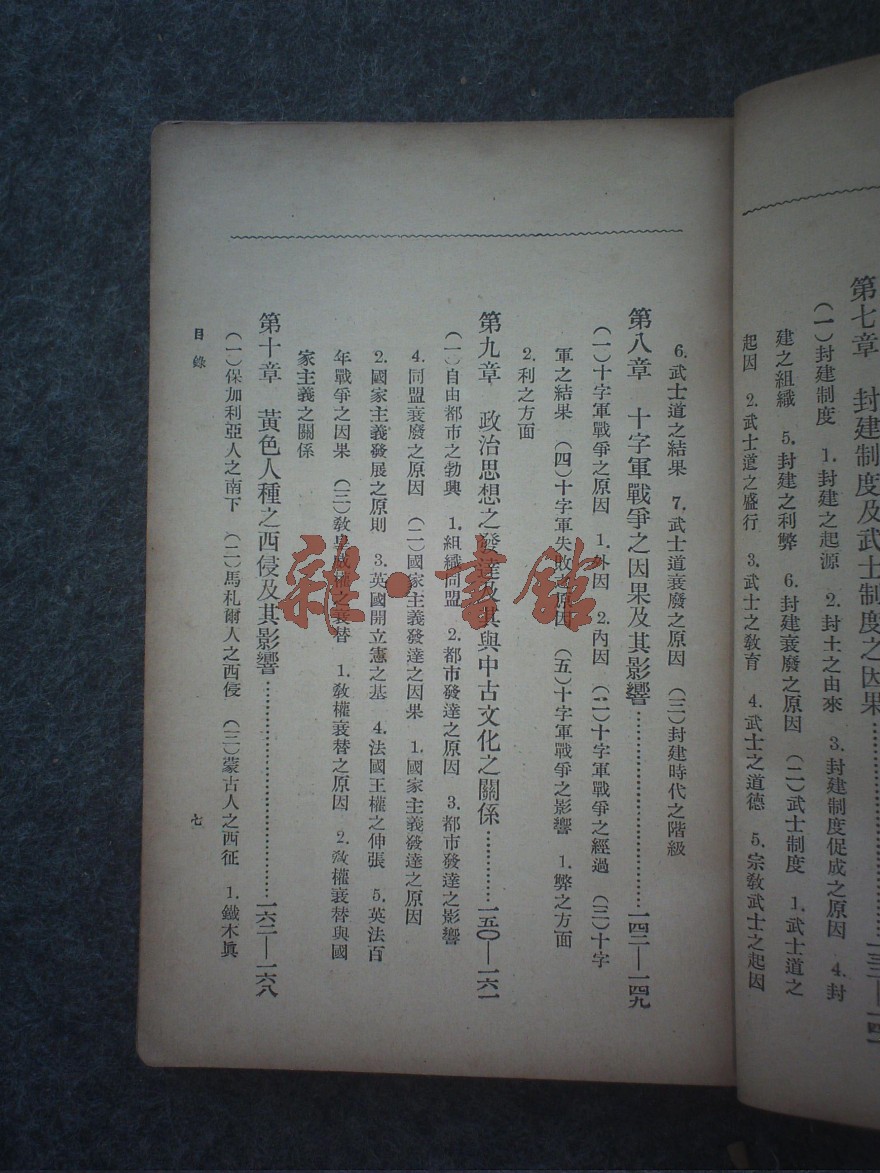 第七章　封建制度及武士制度之因果
（一）封建制度　1.封建之起源　2.封土之由來　3.封建制度促成之原因　4.封
建之組織　5.封建之利弊　6.封建衰廢之原因　（二）武士制度　1.武士道之
起因　2.武士道之盛行　3.武士之敎育　4.武士之道德　5.宗敎武士之起因
6.武士道之結果　7.武士道衰廢之原因　（三）封建時代之階級
第八章　十字軍戰爭之因果及其影響…………一四二—一四九
（一）十字軍戰爭之原因　1.外因　2.內因　（二）十字軍戰爭之經過　（三）十字
軍之結果　（四）十字軍失敗之原因　（五）十字軍戰爭之影響　1.弊之方面
2.利之方面
第九章　政治思想之發達及其與中古文化之關係…………一五〇—一六一
（一）自由都市之勃興　1.組織同盟　2.都市發達之原因　3.都市發達之影響
4.同盟衰廢之原因　（二）國家主義發達之因果　1.國家主義發達之原因
2.國家主義發展之原則　3.英國開立憲之基　4.法國王權之伸張　5.英法百
年戰爭之因果　（三）敎皇威權之衰替　1.敎權衰替之原因　2.敎權衰替與國
家主義之關係
第十章　黃色人種之西侵及其影響…………一六二—一六八
（一）保加利亞人之南下　（二）馬札爾人之西侵　（三）蒙古人之西征　1.鐵木眞
目錄　七
雜·書館